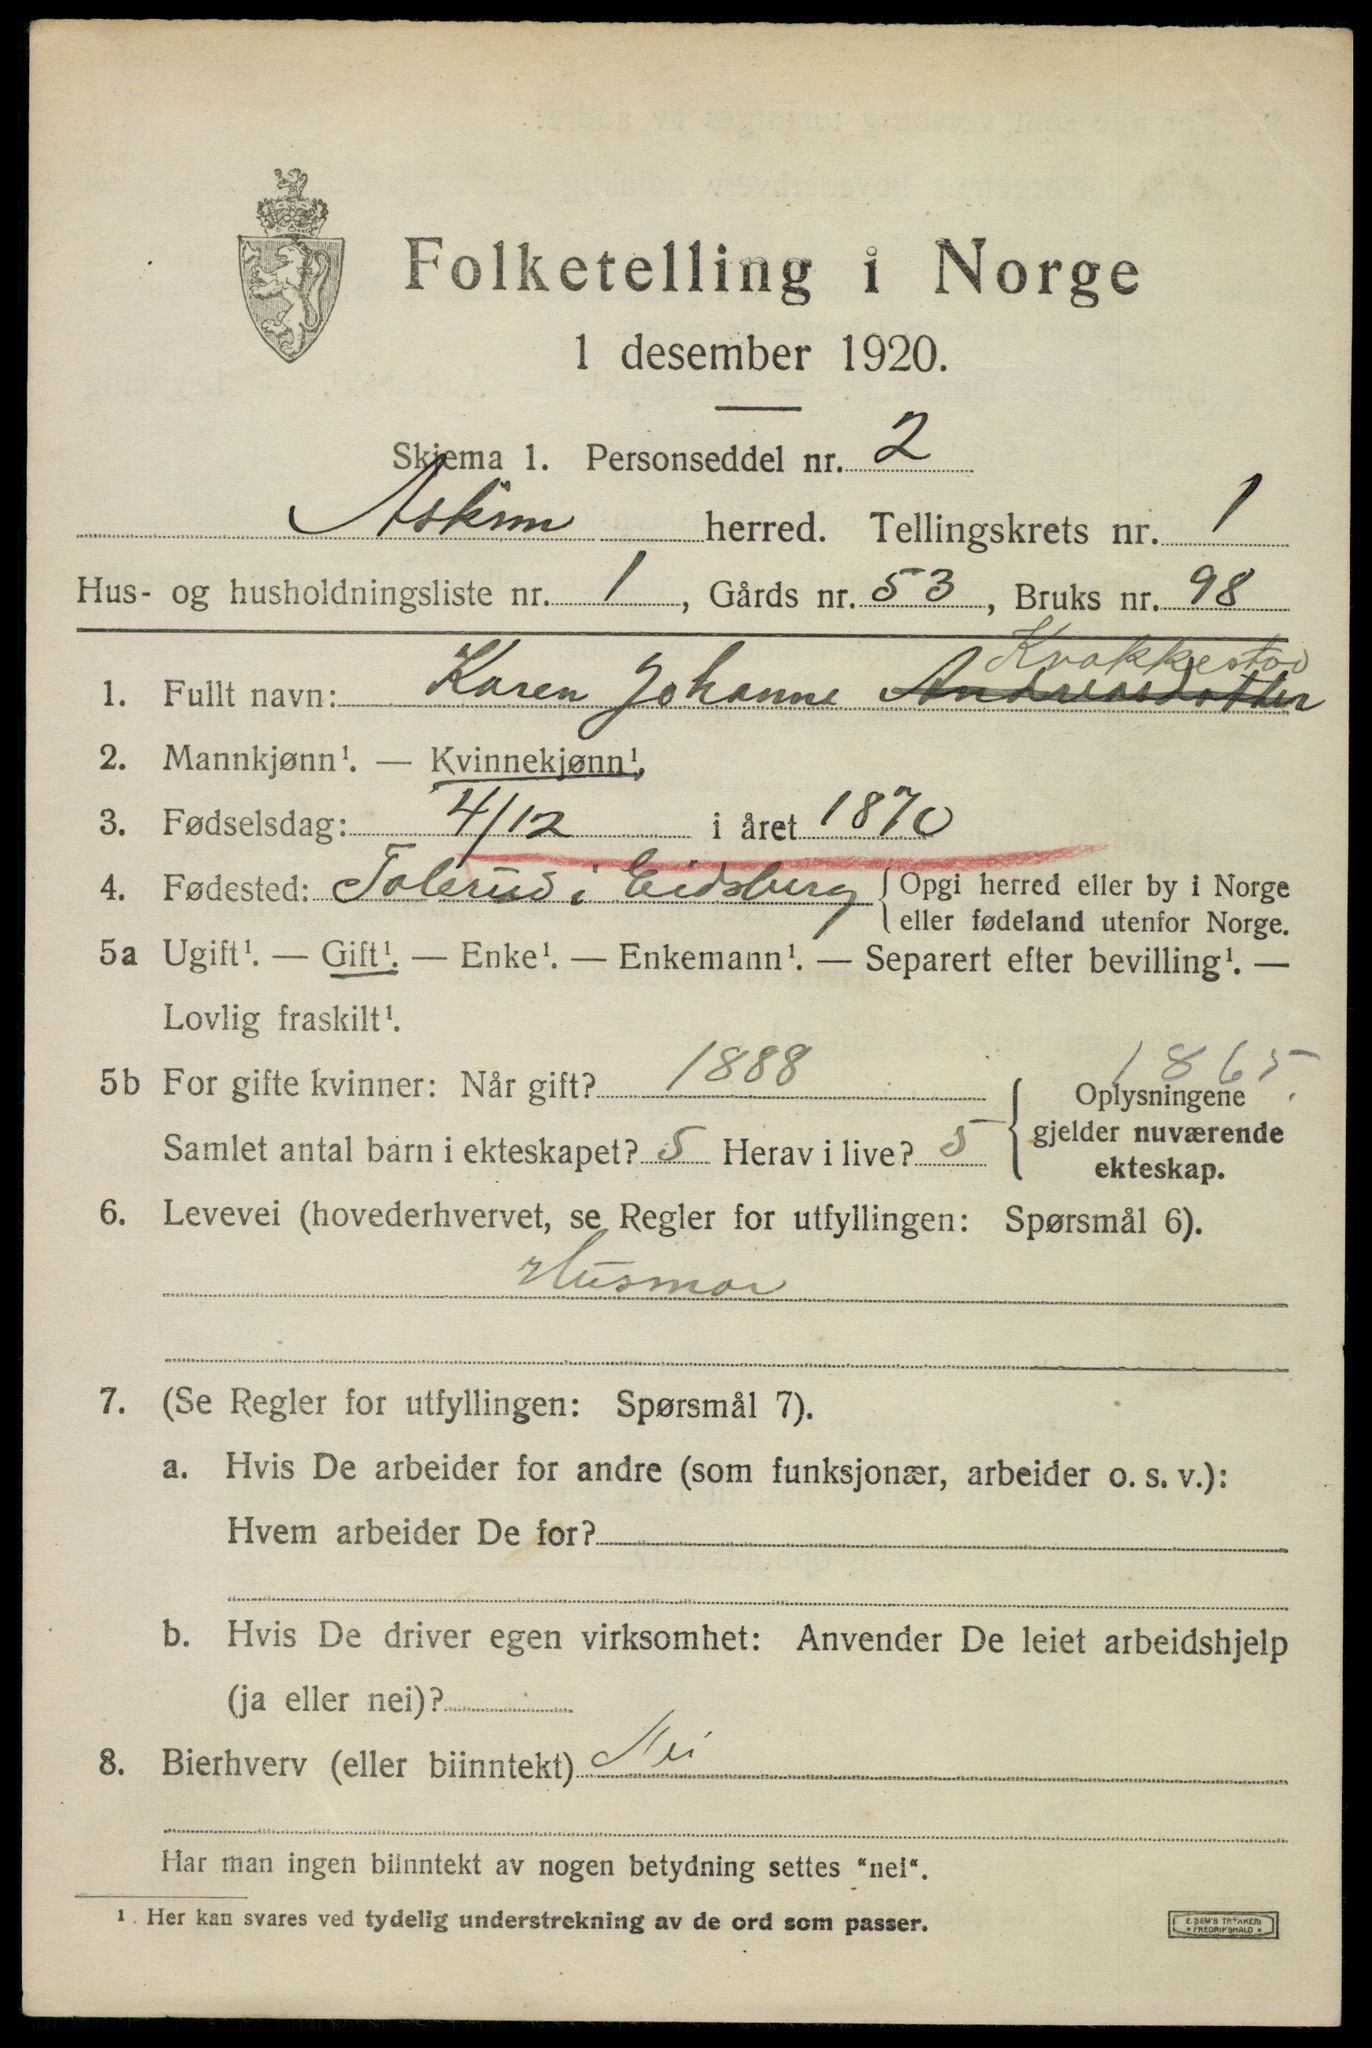 Folketelling i Norge
1 desember 1920.
Skjema 1. Personseddel nr. 2
Askim herred. Tellingskrets nr. 1
Hus- og husholdningsliste nr. 1, Gårds nr. 53, Bruks nr. 98
Krakkestad
1. Fullt navn: Karen Johanne Andreasdatter
2. Mannkjønn¹. — Kvinnekjønn¹.
3. Fødselsdag: 4/12 i året 1870
4. Fødested: Tolerud i Eidsberg {Opgi herred eller by i Norge
eller fødeland utenfor Norge.
5a Ugift¹. — Gift¹. — Enke¹. — Enkemann¹. — Separert efter bevilling¹. —
Lovlig fraskilt¹.
1865.
5b For gifte kvinner: Når gift? 1888 Oplysningene
Samlet antal barn i ekteskapet? 5 Herav i live? 5 gjelder nuværende
ekteskap.
6. Levevei (hovederhvervet, se Regler for utfyllingen: Spørsmål 6).
Husmor
7. (Se Regler for utfyllingen: Spørsmål 7).
a. Hvis De arbeider for andre (som funksjonær, arbeider o. s. v.):
Hvem arbeider De for?
b. Hvis De driver egen virksomhet: Anvender De leiet arbeidshjelp
(ja eller nei)?
8. Bierhverv (eller biinntekt) Nei
Har man ingen biinntekt av nogen betydning settes "nei".
¹ . Her kan svares ved tydelig understrekning av de ord som passer.
E. SEM'S TRYKKERI
* FREDRIKSHALD *